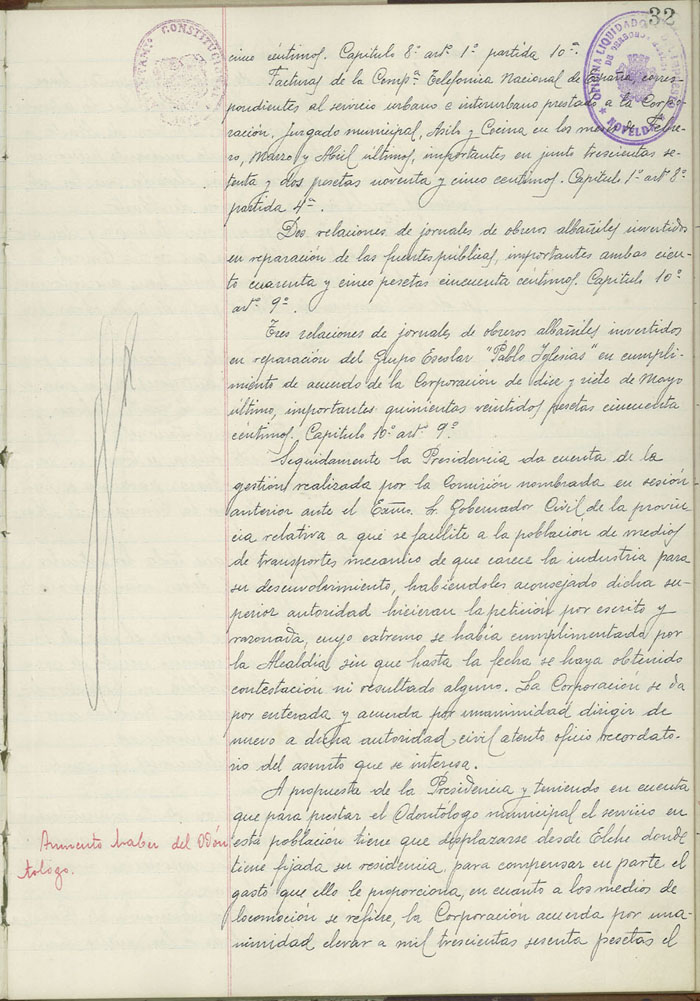 32
AYUNTAM. CONSTITUCIONAL
OFICINA LIQUIDADORA DEL IMPUESTO
DE DERECHOS REALES
NOVELDA
cinco centimos. Capitulo 8º artº 1º partida 10ª.
Facturas de la Compª Telefonica Nacional de España, corres-
pondientes al servicio urbano e interurbano prestado a la Corpo-
ración, Juzgado municipal, Asilo y Cocina en los meses de Febre-
ro, Marzo y Abril últimos, importantes en junto trescientas se-
tenta y dos pesetas noventa y cinco centimos. Capitulo 1º artº 8º
partida 4ª.
Dos relaciones de jornales de obreros albañiles invertidos
en reparación de las fuentes públicas, importantes ambas cien-
to cuarenta y cinco pesetas cincuenta céntimos. Capitulo 10º
artº 9º.
Tres relaciones de jornales de obreros albañiles invertidos
en reparación del Grupo Escolar "Pablo Iglesias" en cumpli-
miento de acuerdo de la Corporación de diez y siete de Mayo
último, importantes quinientas veintidos pesetas cincuenta
céntimos. Capitulo 10º artº 9º
Seguidamente la Presidencia da cuenta de la
gestión realizada por la Comisión nombrada en sesión
anterior ante el Excmo. Sr. Gobernador Civil de la provin-
cia relativa a que se facilite a la población de medios
de transportes mecanico de que carece la industria para
su desenvolvimiento, habiendoles aconsejado dicha su-
perior autoridad hicieran la petición por escrito y
razonada, cuyo extremo se había cumplimentado por
la Alcaldía sin que hasta la fecha se haya obtenido
contestación ni resultado alguno. La Corporación se da
por enterada y acuerda por unanimidad dirigir de
nuevo a dicha autoridad civil atento oficio recordato-
rio del asunto que se interesa.
Aumento haber del Odón
tologo.
A propuesta de la Presidencia y teniendo en cuenta
que para prestar el Odontólogo municipal el servicio en
esta población tiene que desplazarse desde Elche donde
tiene fijada su residencia, para compensar en parte el
gasto que ello le proporciona, en cuanto a los medios de
locomoción se refiere, la Corporación acuerda por una-
nimidad elevar a mil trescientas sesenta pesetas el